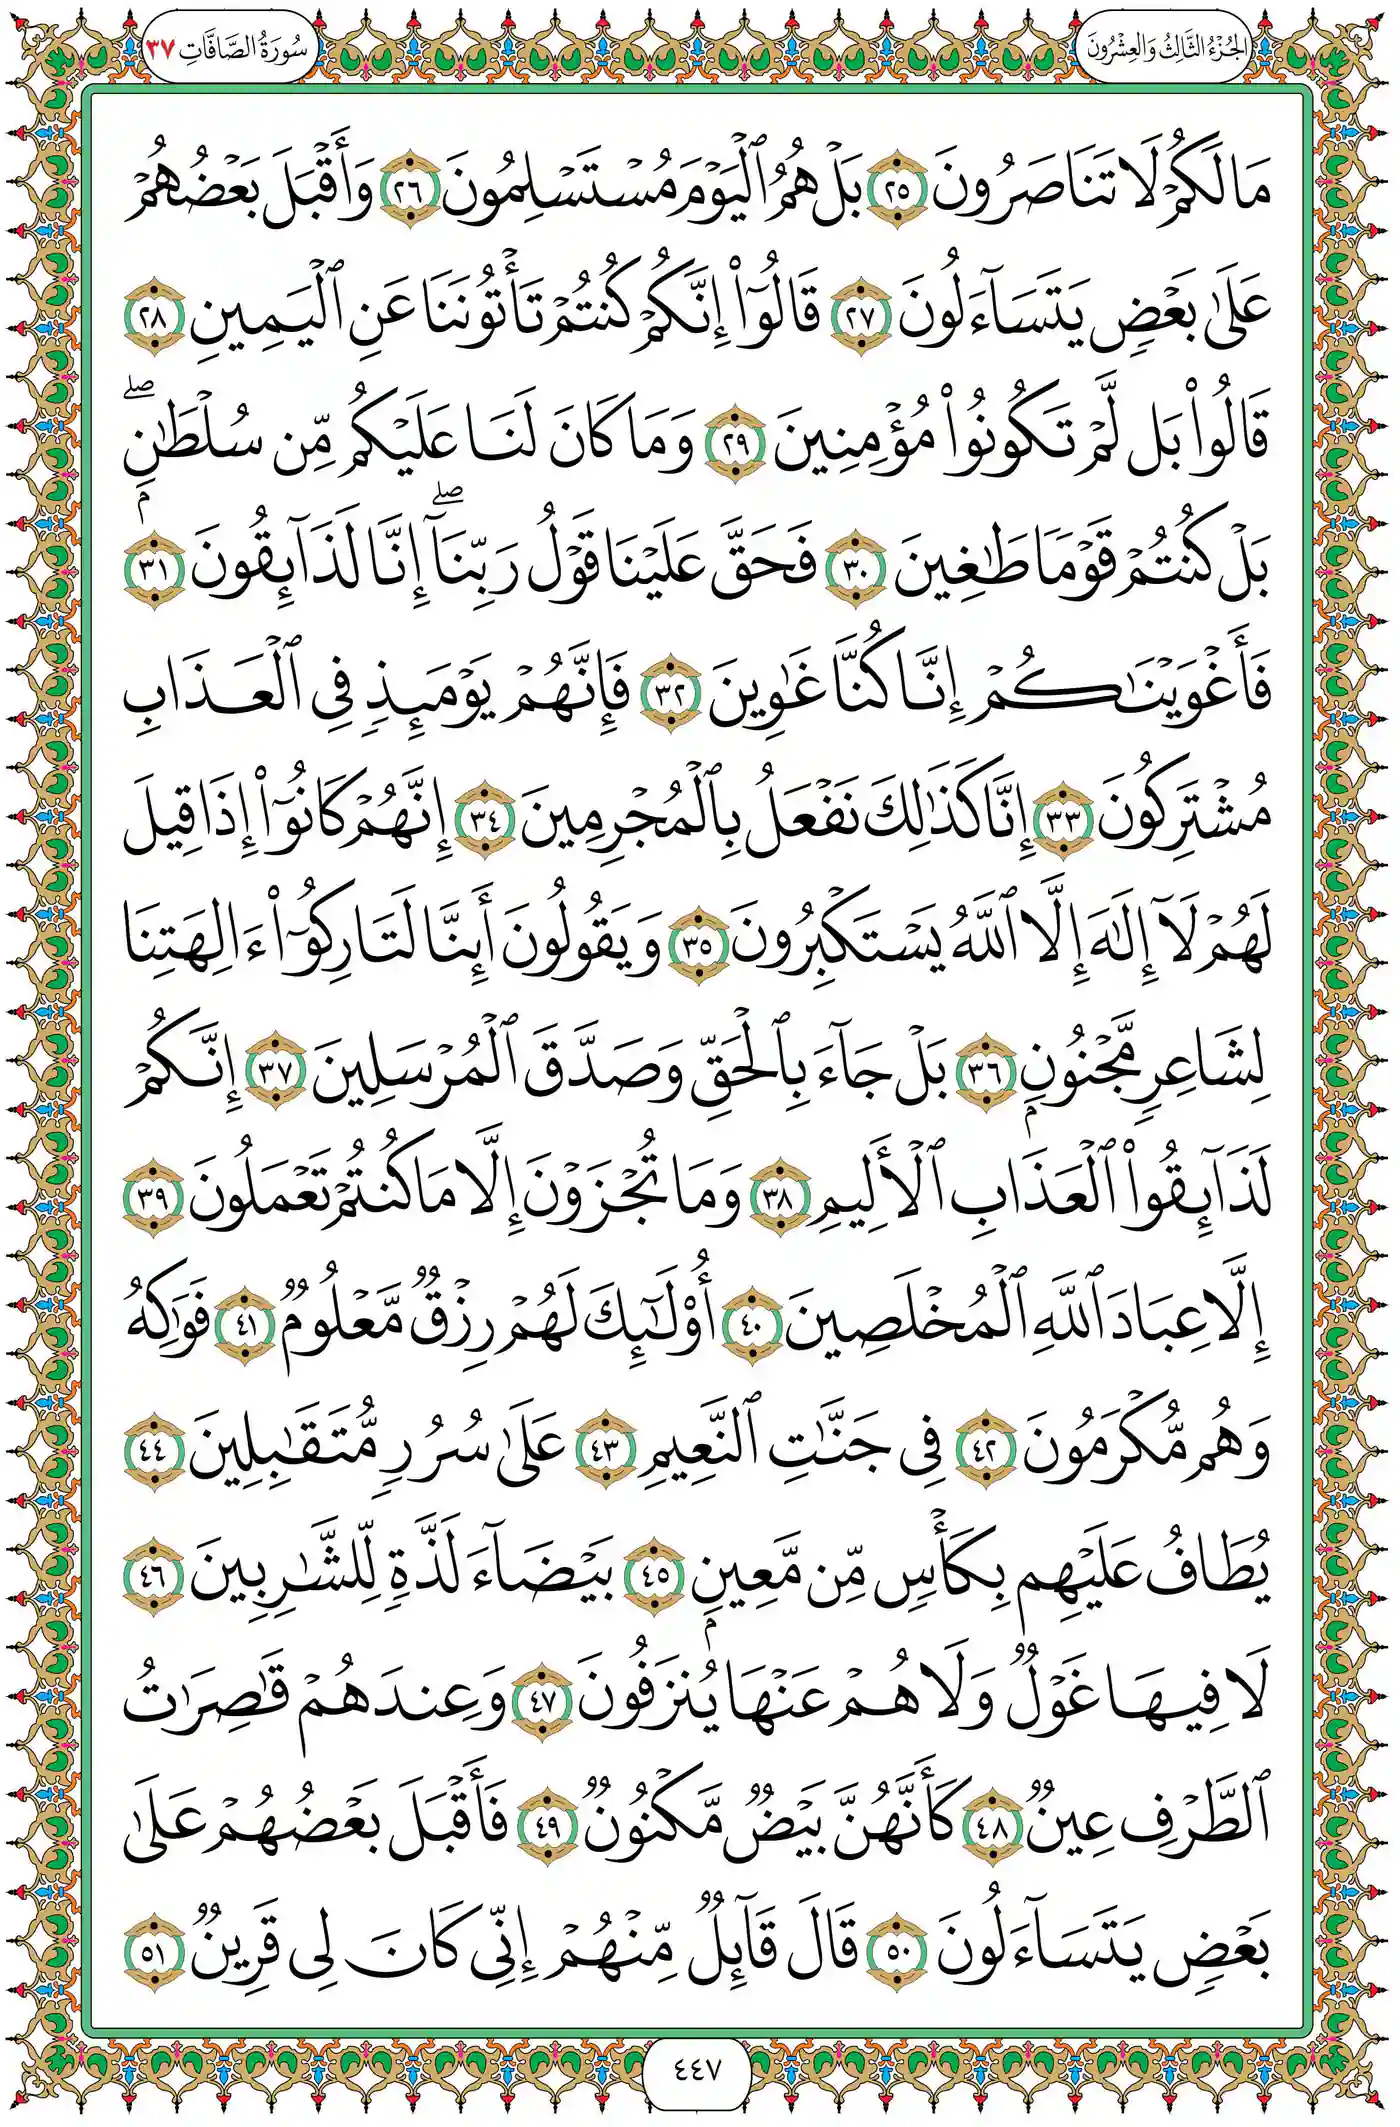 الجُزْءُ الثَّالِثُ وَالعِشْرُونَ
سُورَةُ الصَّافَّاتِ ٣٧
مَا لَكُمْ لَا تَنَاصَرُونَ ٢٥ بَلْ هُمُ ٱلْيَوْمَ مُسْتَسْلِمُونَ ٢٦ وَأَقْبَلَ بَعْضُهُمْ
عَلَىٰ بَعْضٍ يَتَسَآءَلُونَ ٢٧ قَالُوٓا۟ إِنَّكُمْ كُنتُمْ تَأْتُونَنَا عَنِ ٱلْيَمِينِ ٢٨
قَالُوا۟ بَل لَّمْ تَكُونُوا۟ مُؤْمِنِينَ ٢٩ وَمَا كَانَ لَنَا عَلَيْكُم مِّن سُلْطَٰنٍۭ ۖ
بَلْ كُنتُمْ قَوْمًا طَٰغِينَ ٣٠ فَحَقَّ عَلَيْنَا قَوْلُ رَبِّنَآ ۖ إِنَّا لَذَآئِقُونَ ٣١
فَأَغْوَيْنَٰكُمْ إِنَّا كُنَّا غَٰوِينَ ٣٢ فَإِنَّهُمْ يَوْمَئِذٍ فِى ٱلْعَذَابِ
مُشْتَرِكُونَ ٣٣ إِنَّا كَذَٰلِكَ نَفْعَلُ بِٱلْمُجْرِمِينَ ٣٤ إِنَّهُمْ كَانُوٓا۟ إِذَا قِيلَ
لَهُمْ لَآ إِلَٰهَ إِلَّا ٱللَّهُ يَسْتَكْبِرُونَ ٣٥ وَيَقُولُونَ أَئِنَّا لَتَارِكُوٓا۟ ءَالِهَتِنَا
لِشَاعِرٍ مَّجْنُونٍۭ ٣٦ بَلْ جَآءَ بِٱلْحَقِّ وَصَدَّقَ ٱلْمُرْسَلِينَ ٣٧ إِنَّكُمْ
لَذَآئِقُوا۟ ٱلْعَذَابِ ٱلْأَلِيمِ ٣٨ وَمَا تُجْزَوْنَ إِلَّا مَا كُنتُمْ تَعْمَلُونَ ٣٩
إِلَّا عِبَادَ ٱللَّهِ ٱلْمُخْلَصِينَ ٤٠ أُو۟لَٰٓئِكَ لَهُمْ رِزْقٌ مَّعْلُومٌ ٤١ فَوَٰكِهُ
وَهُم مُّكْرَمُونَ ٤٢ فِى جَنَّٰتِ ٱلنَّعِيمِ ٤٣ عَلَىٰ سُرُرٍ مُّتَقَٰبِلِينَ ٤٤
يُطَافُ عَلَيْهِم بِكَأْسٍ مِّن مَّعِينٍۭ ٤٥ بَيْضَآءَ لَذَّةٍ لِّلشَّٰرِبِينَ ٤٦
لَا فِيهَا غَوْلٌ وَلَا هُمْ عَنْهَا يُنزَفُونَ ٤٧ وَعِندَهُمْ قَٰصِرَٰتُ
ٱلطَّرْفِ عِينٌ ٤٨ كَأَنَّهُنَّ بَيْضٌ مَّكْنُونٌ ٤٩ فَأَقْبَلَ بَعْضُهُمْ عَلَىٰ
بَعْضٍ يَتَسَآءَلُونَ ٥٠ قَالَ قَآئِلٌ مِّنْهُمْ إِنِّى كَانَ لِى قَرِينٌ ٥١
٤٤٧